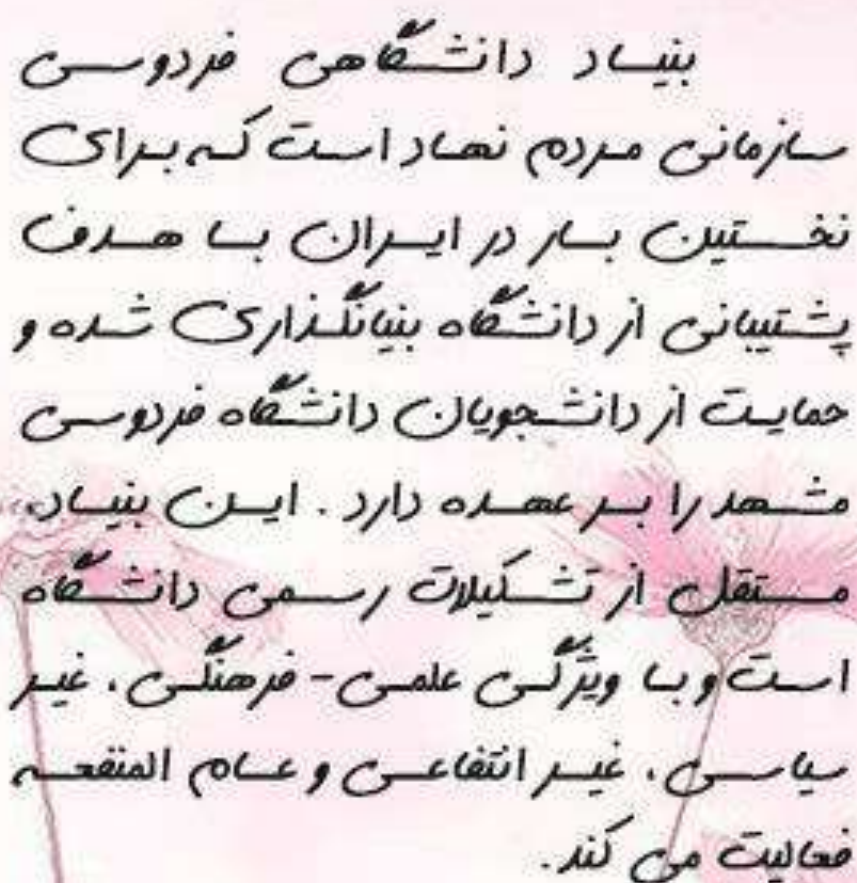 بنیاد دانشگاهی فردوسی
سازمانی مردم نهاد است که برای
نخستین بار در ایران با هدف
پشتیبانی از دانشگاه بنیانگذاری شده و
حمایت از دانشجویان دانشگاه فردوسی
مشهد را بر عهده دارد. این بنیاد،
مستقل از تشکیلات رسمی دانشگاه
است و با ویژگی علمی - فرهنگی، غیر
سیاسی، غیر انتفاعی و عام المنفعه
فعالیت می کند.